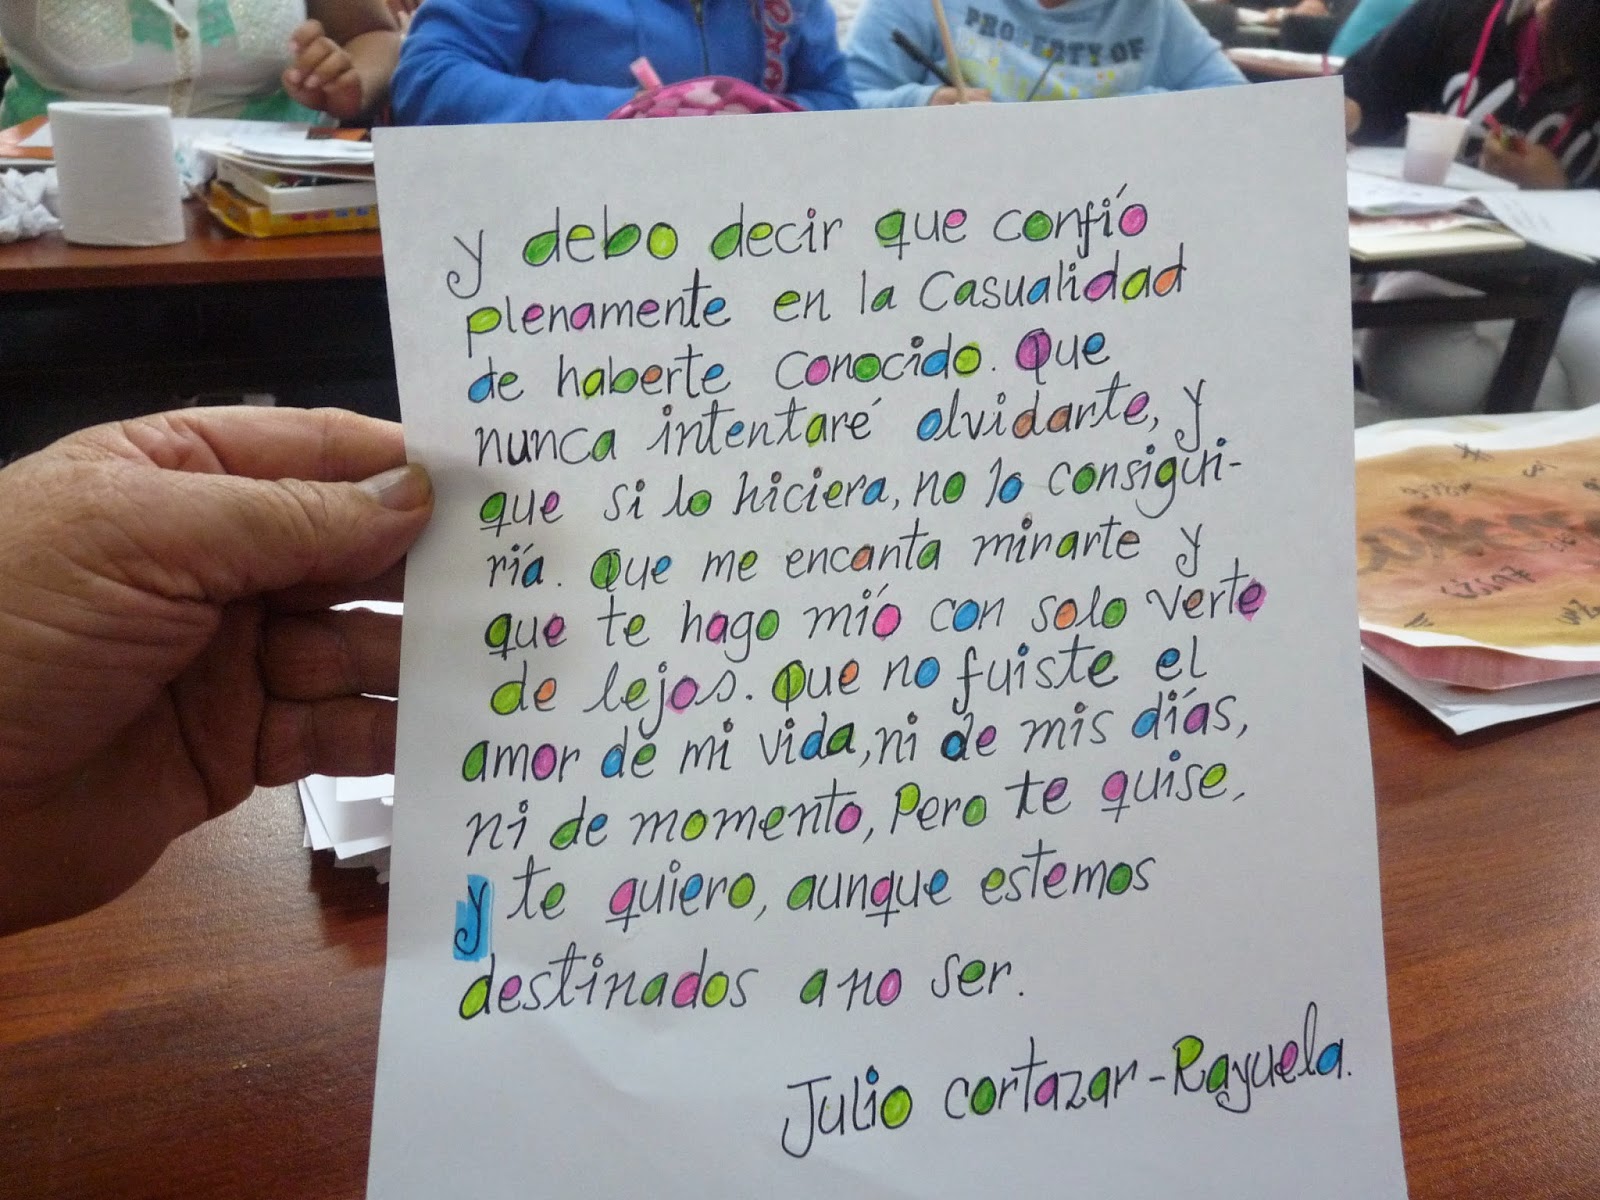 PROPERTY OF
y debo decir que confío
plenamente en la Casualidad
de haberte conocido. Que
nunca intentaré olvidarte, y
que si lo hiciera, no lo consigui-
ría. Que me encanta mirarte y
que te hago mío con solo verte
de lejos. Que no fuiste el
amor de mi vida, ni de mis días,
ni de momento, Pero te quise,
y te quiero, aunque estemos
destinados a no ser.
Julio Cortazar - Rayuela.